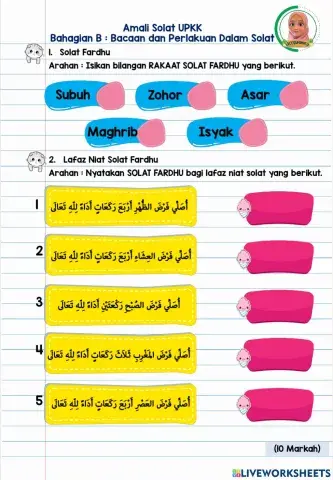 Amali Solat UPKK
Bahagian B : Bacaan dan Perlakuan Dalam Solat
1. Solat Fardhu
Arahan : Isikan bilangan RAKAAT SOLAT FARDHU yang berikut.
Subuh Zohor Asar
Maghrib Isyak
2. Lafaz Niat Solat Fardhu
Arahan : Nyatakan SOLAT FARDHU bagi lafaz niat solat yang berikut.
1 أُصَلِّي فَرْضَ الظُّهْرِ أَرْبَعَ رَكَعَاتٍ أَدَاءً لِلَّهِ تَعَالَى
2 أُصَلِّي فَرْضَ العِشَاءِ أَرْبَعَ رَكَعَاتٍ أَدَاءً لِلَّهِ تَعَالَى
3 أُصَلِّي فَرْضَ الصُّبْحِ رَكْعَتَيْنِ أَدَاءً لِلَّهِ تَعَالَى
4 أُصَلِّي فَرْضَ المَغْرِبِ ثَلَاثَ رَكَعَاتٍ أَدَاءً لِلَّهِ تَعَالَى
5 أُصَلِّي فَرْضَ العَصْرِ أَرْبَعَ رَكَعَاتٍ أَدَاءً لِلَّهِ تَعَالَى
(10 Markah)
LIVEWORKSHEETS